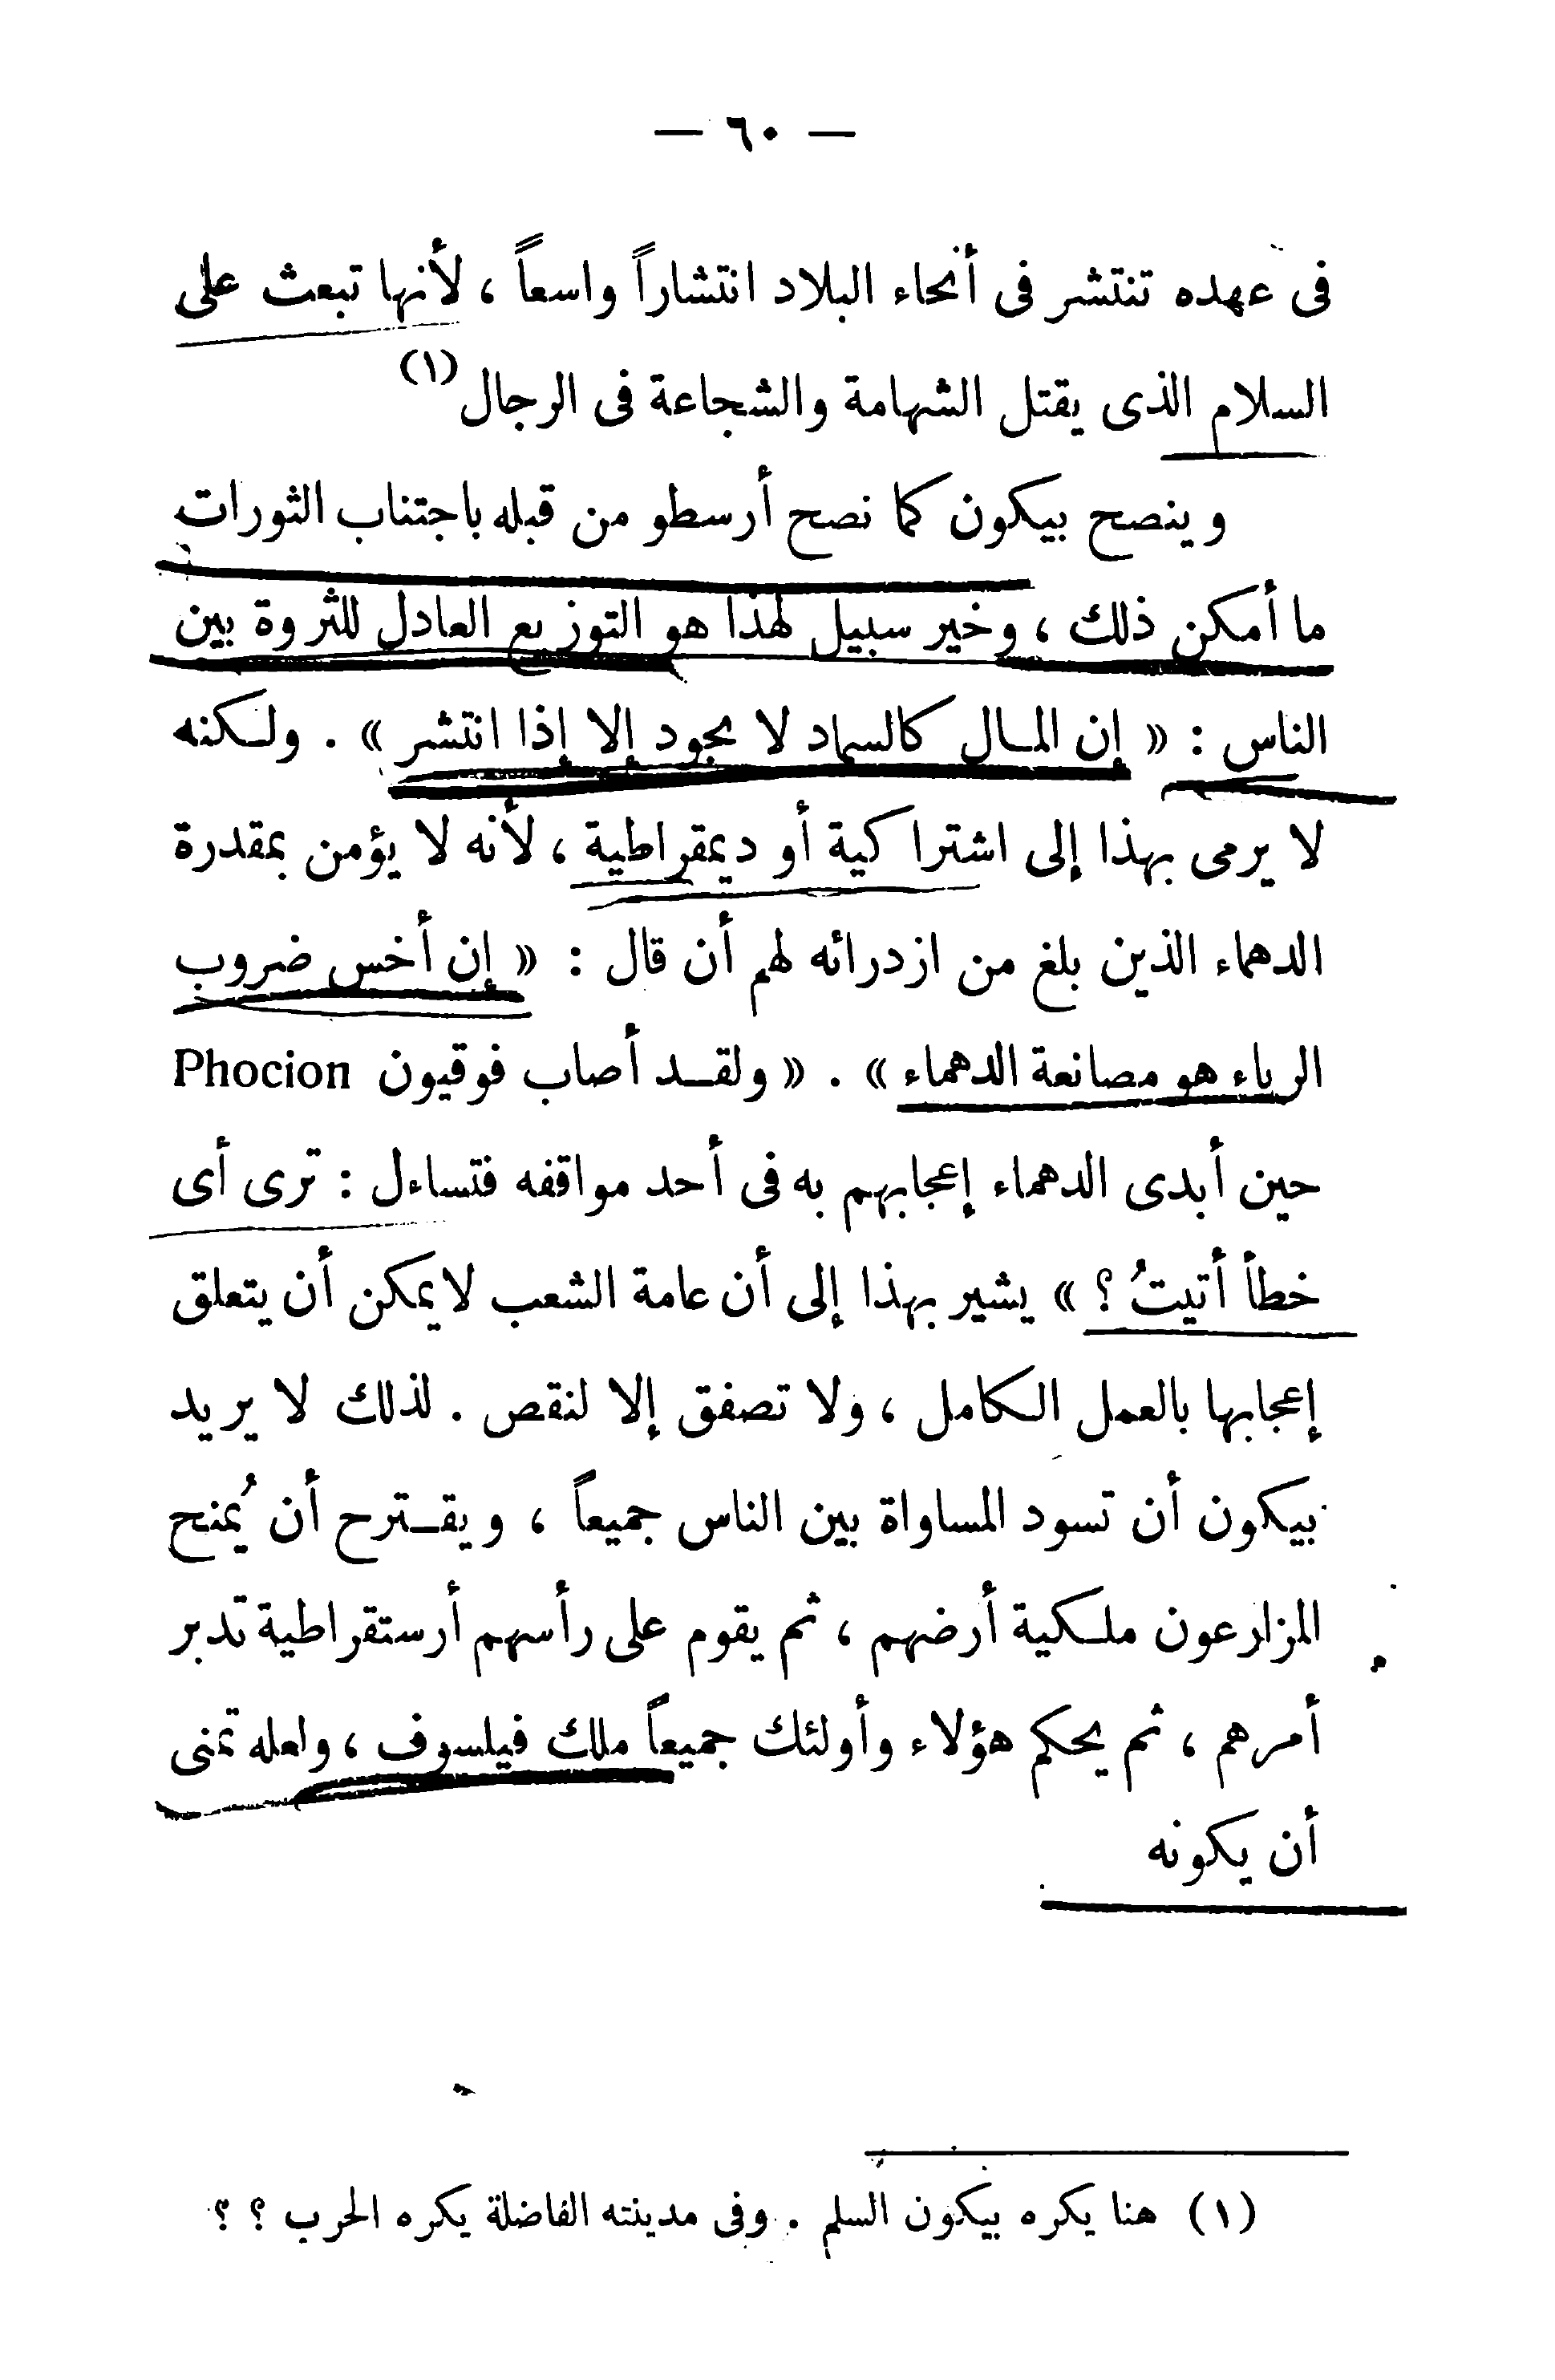 — ٦٠ —
فى عهده تنتشر فى أنحاء البلاد انتشاراً واسعاً ، لأنها تبعث على
السلام الذى يقتل الشهامة والشجاعة فى الرجال (١)
وينصح بيكون كما نصح أرسطو من قبله باجتناب الثورات
ما أمكن ذلك ، وخير سبيل لهذا هو التوزيع العادل للثروة بين
الناس : « إن المال كالسماد لا يجود إلا إذا انتشر » . ولكنه
لا يرمى بهذا إلى اشتراكية أو ديمقراطية ، لأنه لا يؤمن بمقدرة
الدهماء الذين بلغ من ازدرائه لهم أن قال : « إن أخس ضروب
الرياء هو مصانعة الدهماء » . « ولقد أصاب فوقيون Phocion
حين أبدى الدهماء إعجابهم به فى أحد مواقفه فتساءل : ترى أى
خطأ أتيتُ ؟ » يشير بهذا إلى أن عامة الشعب لا يمكن أن يتعلق
إعجابها بالعمل الكامل ، ولا تصفق إلا لنقص . لذلك لا يريد
بيكون أن تسود المساواة بين الناس جميعاً ، ويقترح أن يُمنح
المزارعون ملكية أرضهم ، ثم يقوم على رأسهم أرستقراطية تدبر
أمرهم ، ثم يحكم هؤلاء وأولئك جميعاً ملك فيلسوف ، ولعله تمنى
أن يكونه
(١) هنا يكره بيكون السلم . وفى مدينته الفاضلة يكره الحرب ؟ ؟